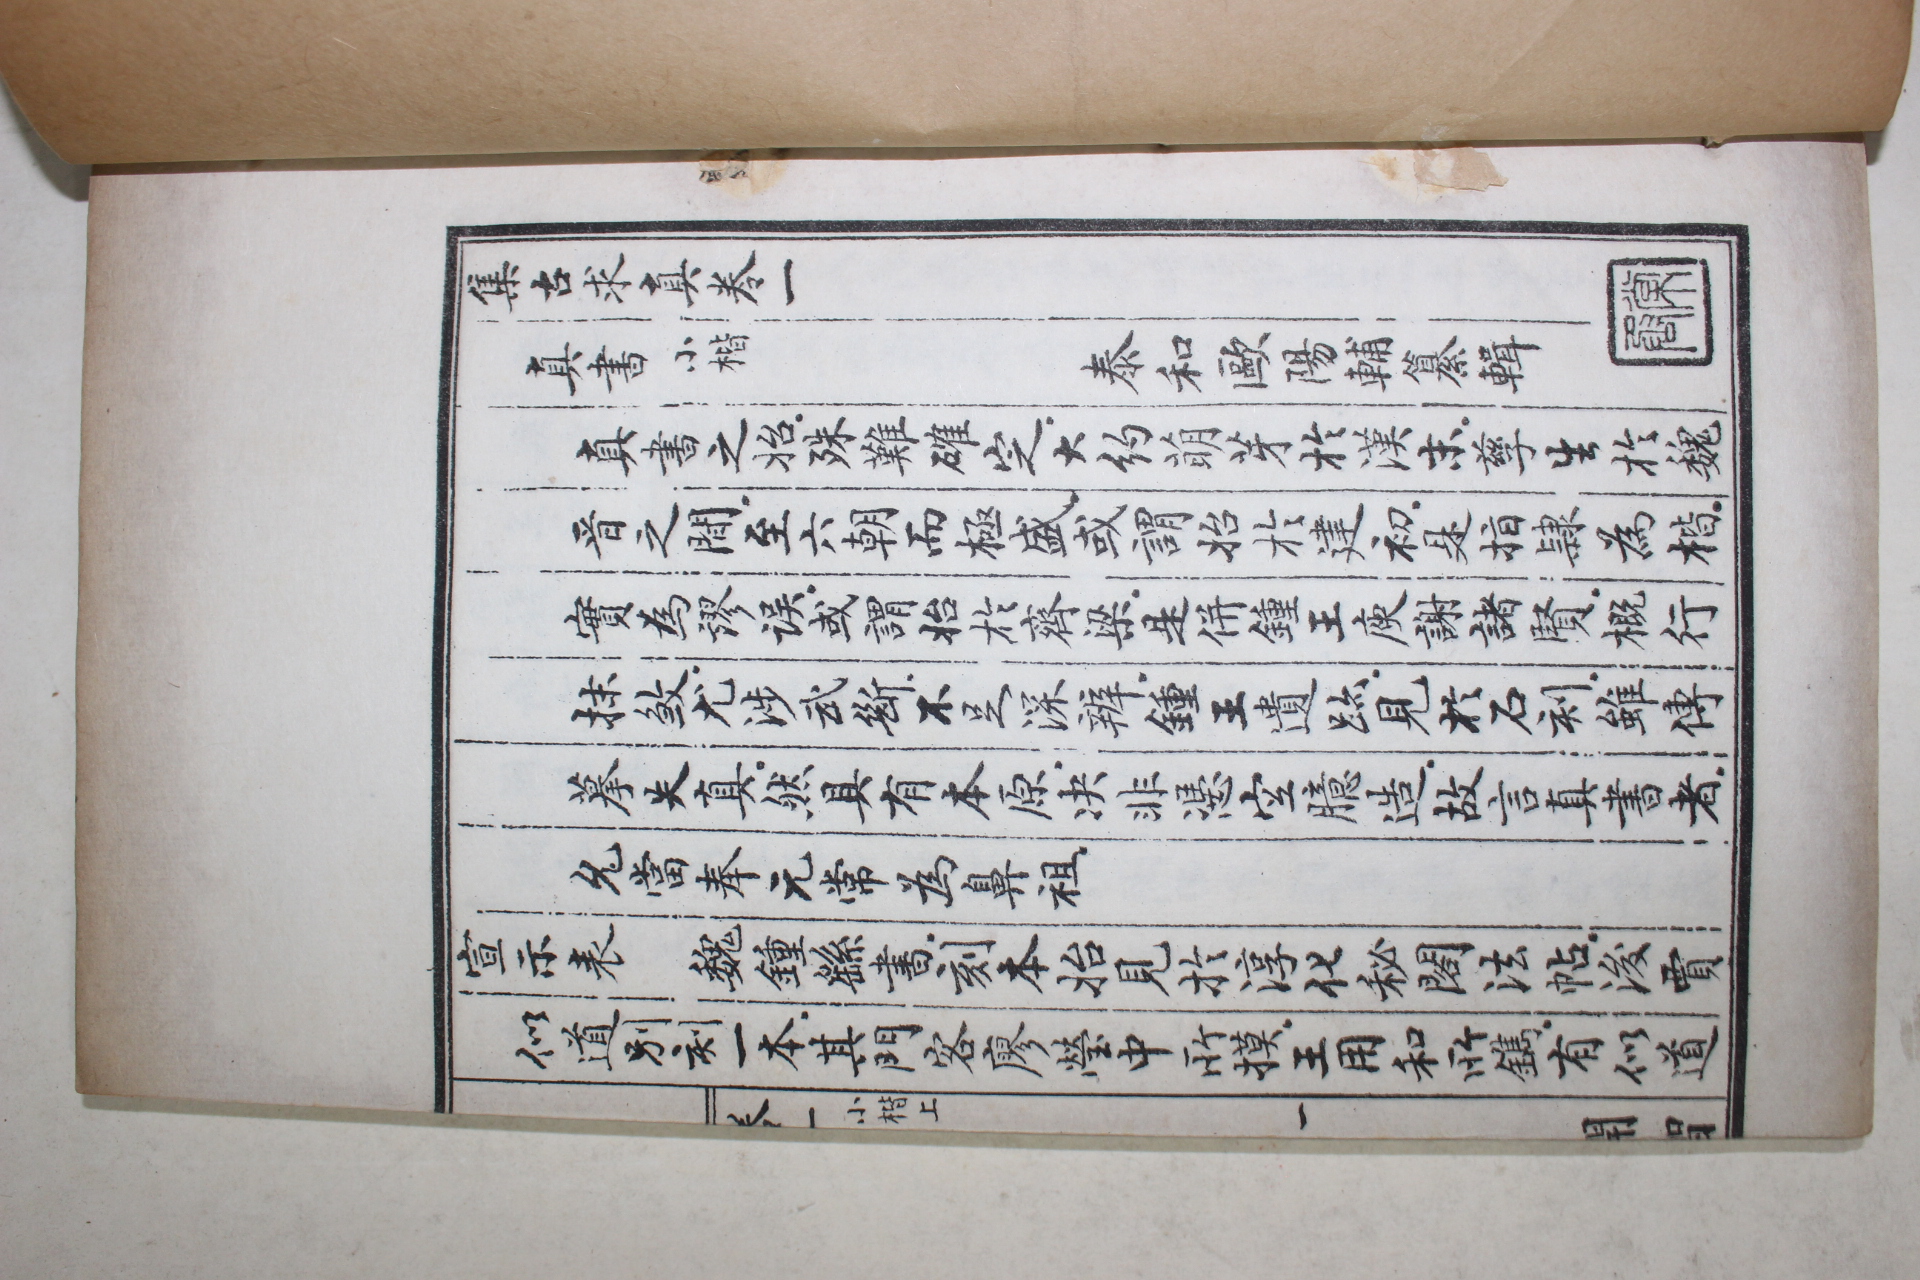 集古求真卷一
真書 小楷 泰和歐陽輔纂輯
真書之始殊難確定大約萌芽於漢末孳生於魏
晉之間至六朝而極盛或謂始於建初是指隸為楷
實為謬误或謂始於齊梁是併鍾王庾謝諸賢概行
抹煞尤涉武斷不足深辨鍾王遺跡見於石刻雖傳
摹失真然具有本原决非憑空臆造故言真書者
允當奉元常為鼻祖
宣示表 魏鍾繇書刻本始見於淳化秘閣法帖後賈
似道别刻一本其門客廖瑩中所摸王用和所鐫有似道
卷一 小楷上 一 開智